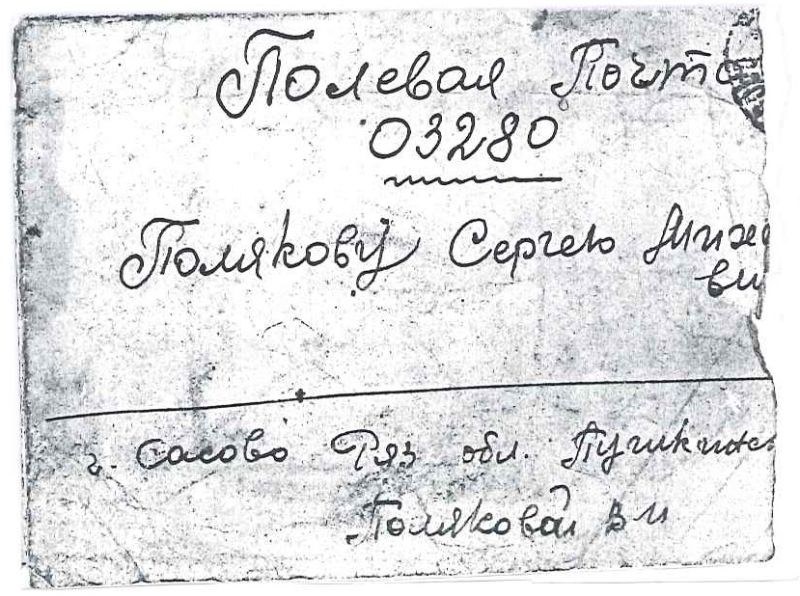 Полевая Почта
03280
Полякову Сергею Миха
ви
г. Сасово Ряз обл. Пушкинск
Поляковой В И